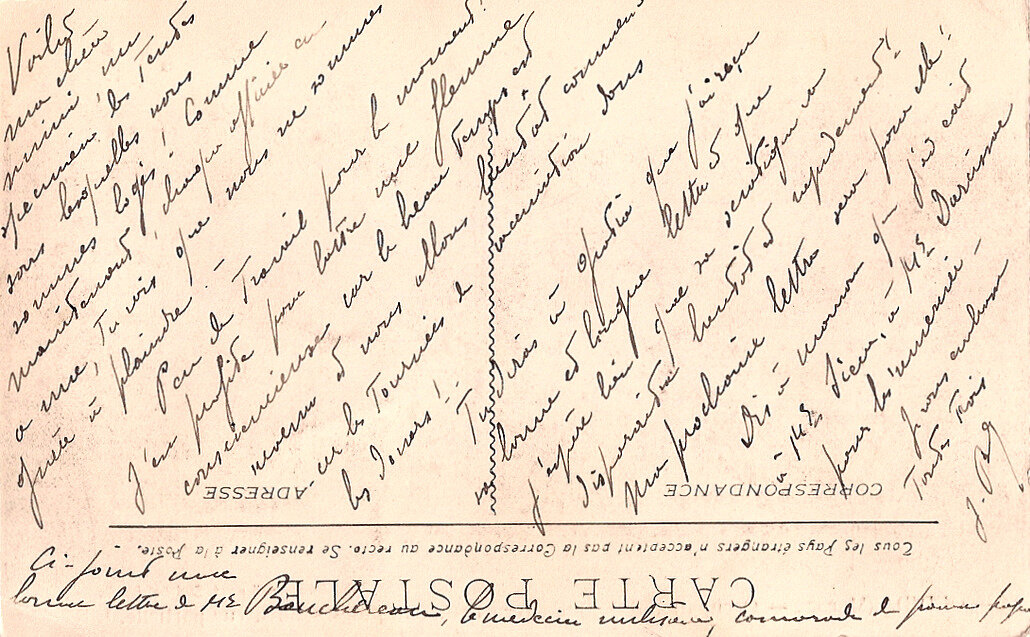 Voilà
ma chère
mimi un
spécimen des tentes
sous lesquelles nous
sommes logés ! Comme
maintenant chaque officier en
a une, tu vois que nous ne sommes
guère à plaindre !
Peu de travail pour le moment !
J'en profite pour battre une flemme
consciencieuse car le beau temps est
revenu et nous allons bientôt commencer
les tournées de vaccination dans
les douars !
Tu diras à que j'ai reçu
sa bonne et longue lettre et que
j'espère bien que sa sciatique va
disparaître bientôt et rapidement !
Ma prochaine lettre sera pour elle !
Dis à maman que j'ai écrit
à Mr Dieu, à Mr Darcissac
pour les remercier
Je vous embrasse
Toutes Trois
J. B
ADRESSE
CORRESPONDANCE
Tous les Pays étrangers n'acceptent pas la Correspondance au recto. Se renseigner à la Poste.
CARTE POSTALE
Ci-joint une
bonne lettre de Mr le médecin militaire, camarade de pauvre papa